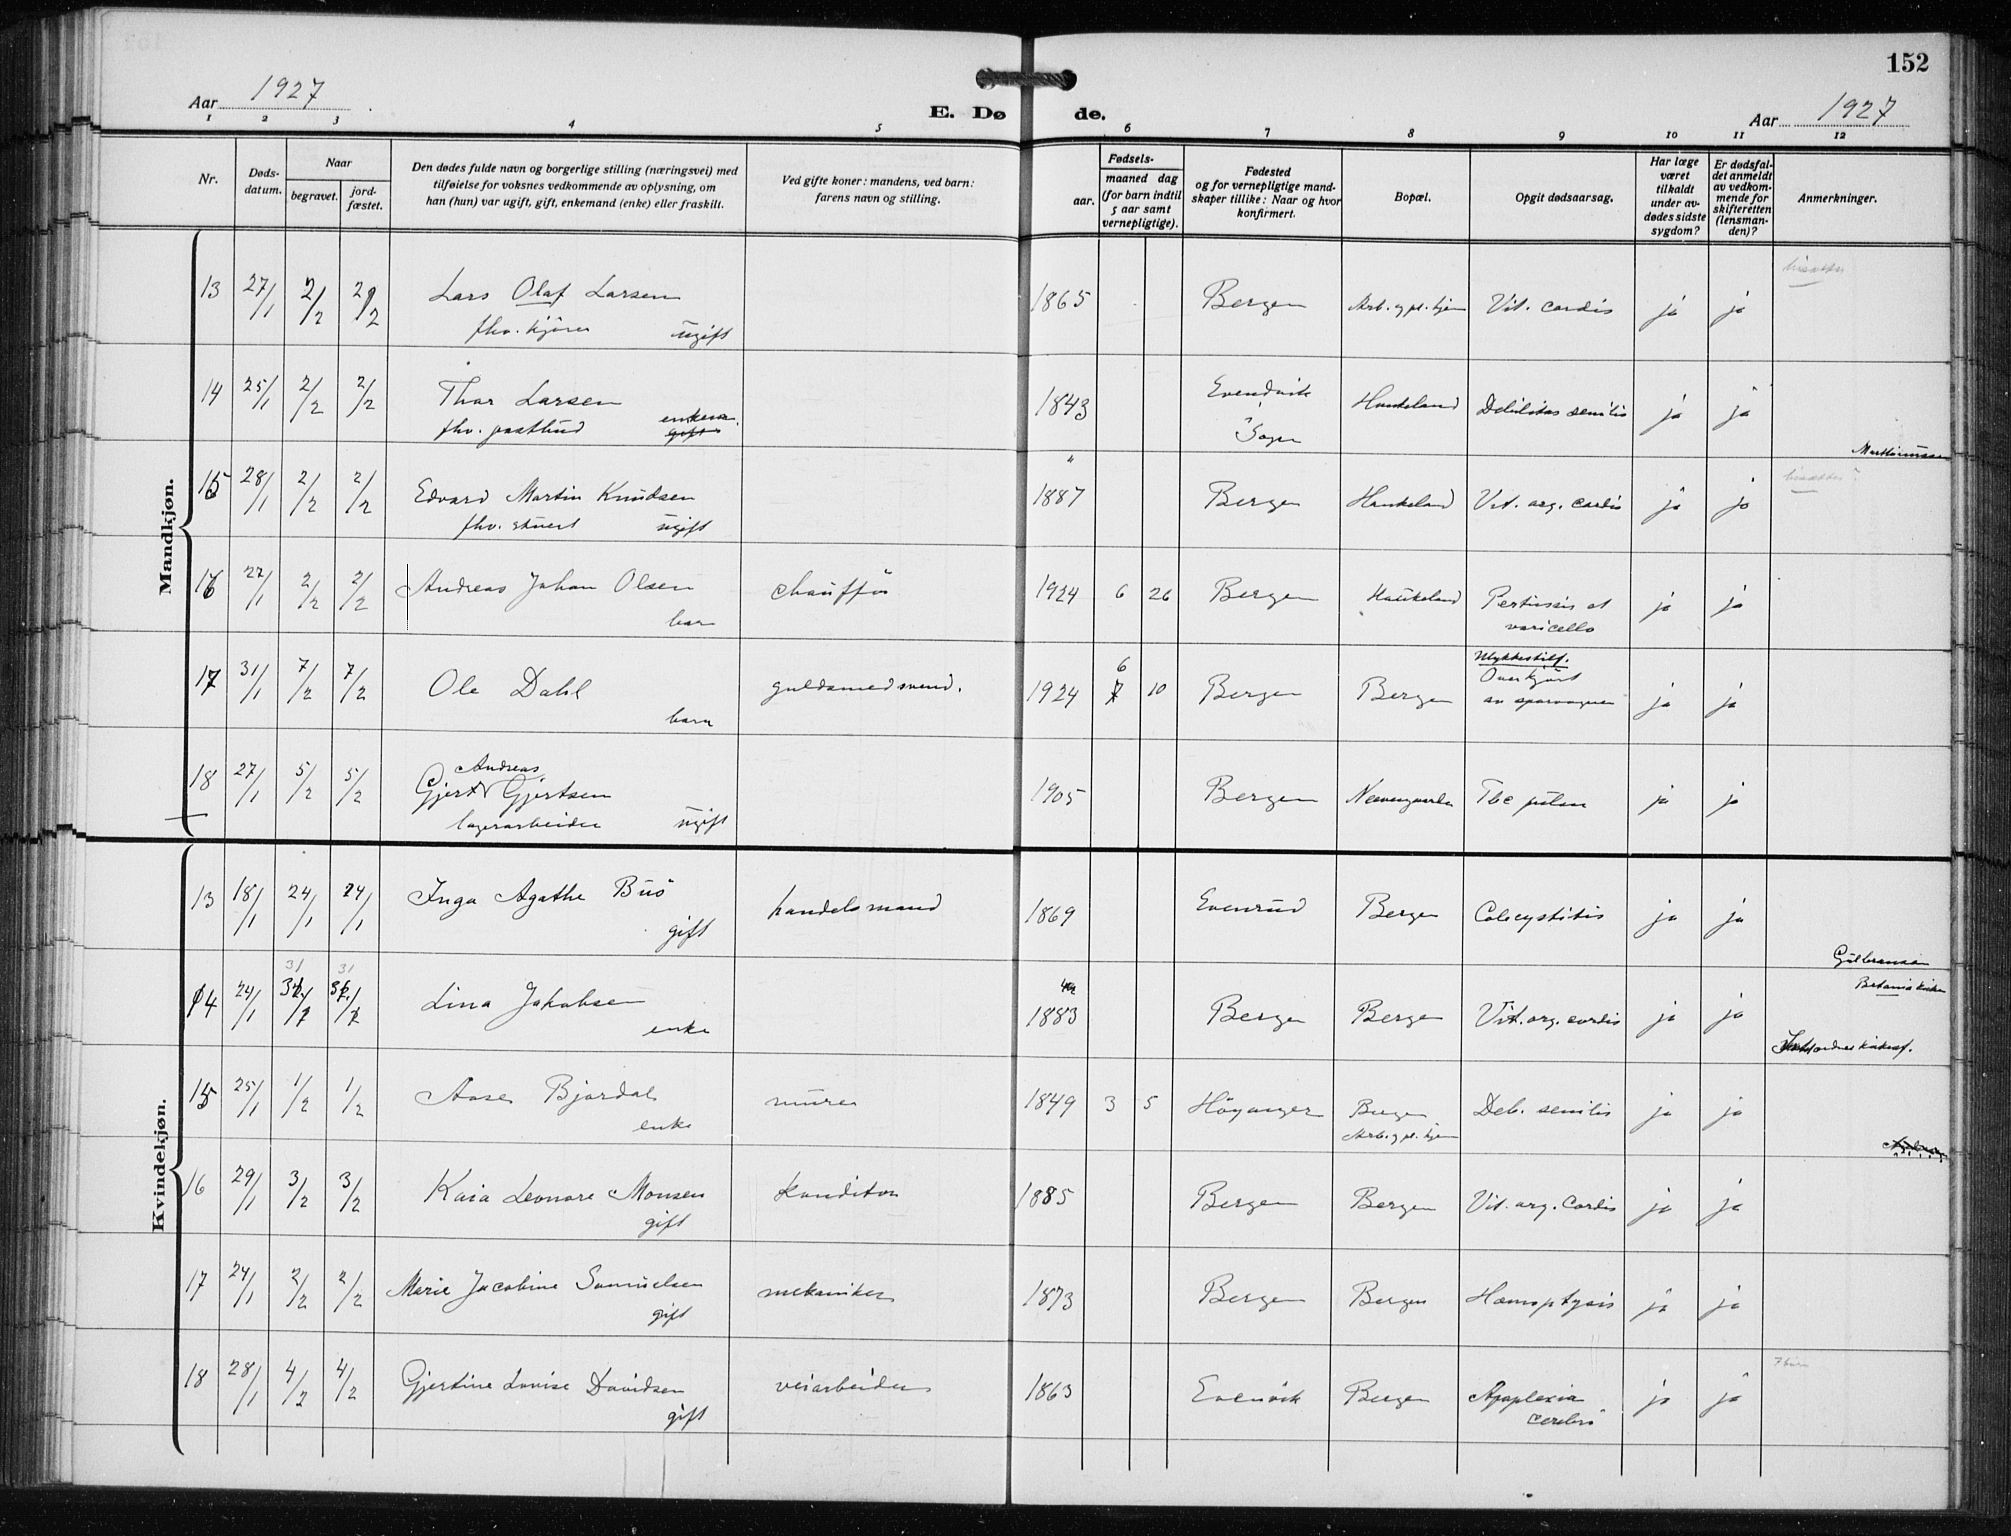 152
Aar 1927
E. Døde.
Aar 1927
1 2 3 4 5 6 7 8 9 10 11 12
Nr.
Døds-
datum.
Naar
begravet.
jord-
fæstet.
Den dødes fulde navn og borgerlige stilling (næringsvei) med
tilføielse for voksnes vedkommende av oplysning, om
han (hun) var ugift, gift, enkemand (enke) eller fraskilt.
Ved gifte koner: mandens, ved barn:
farens navn og stilling.
Fødsels-
aar.
maaned dag
(for barn indtil
5 aar samt
vernepligtige).
Fødested
og for vernepligtige mand-
skaper tillike: Naar og hvor
konfirmert.
Bopæl.
Opgit dødsaarsag.
Har læge
været
tilkaldt
under av-
dødes sidste
sygdom?
Er dødsfal-
det anmeldt
av vedkom-
mende for
skifteretten
(lensman-
den)?
Anmerkninger.
Mandkjøn.
13 27/1 2/2 2/2 Lars Olaf Larsen 1865 Bergen Arb. og pl. hjem Vit. cordis ja ja
fhv. kjører ugift
14 25/1 2/2 2/2 Thor Larsen 1843 Evendvik Haukeland Debilitas senilis ja ja
fhv. postbud enkem. gift Sogn
15 28/1 2/2 2/2 Edvard Martin Knudsen 1887 Bergen Haukeland Vit. org. cordis ja ja
fhv. stuert ugift
16 27/1 2/2 2/2 Andreas Johan Olsen chauffør 1924 6 26 Bergen Haukeland Pertussis et ja ja
barn varicello
17 31/1 7/2 7/2 Ole Dahl guldsmedsvend. 1924 6 7 10 Bergen Bergen Ulykkestilf. Overkjørt ja ja
barn av sporvognen
18 27/1 5/2 5/2 Gjert Andreas Gjertsen 1905 Bergen Neevengaarden Tbc pulm ja ja
lagerarbeider ugift
Kvindekjøn.
13 18/1 24/1 24/1 Inga Agathe Buø handelsmand 1869 Evenvud Bergen Colecystitis ja ja
gift
Gulbransen
14 24/1 31 31 Lina Jakobsen 1883 Bergen Bergen Vit. org. cordis ja ja Betania kirken
enke
15 25/1 1/2 1/2 Aase Bjordal murer 1849 3 5 Höyanger Bergen Deb. senilis ja ja
enke Arb. og pl. hjem
16 29/1 3/2 3/2 Kaia Leonore Monsen konditor 1885 Bergen Bergen Vit. org. Cordis ja ja
gift
17 24/1 2/2 2/2 Marie Jacobine Samuelsen mekaniker 1873 Bergen Bergen Hæmoptysis ja ja
gift
18 28/1 4/2 4/2 Gjertine Lovise Davidsen veiarbeider 1863 Evenvik Bergen Apoplexia ja ja
gift cerebri